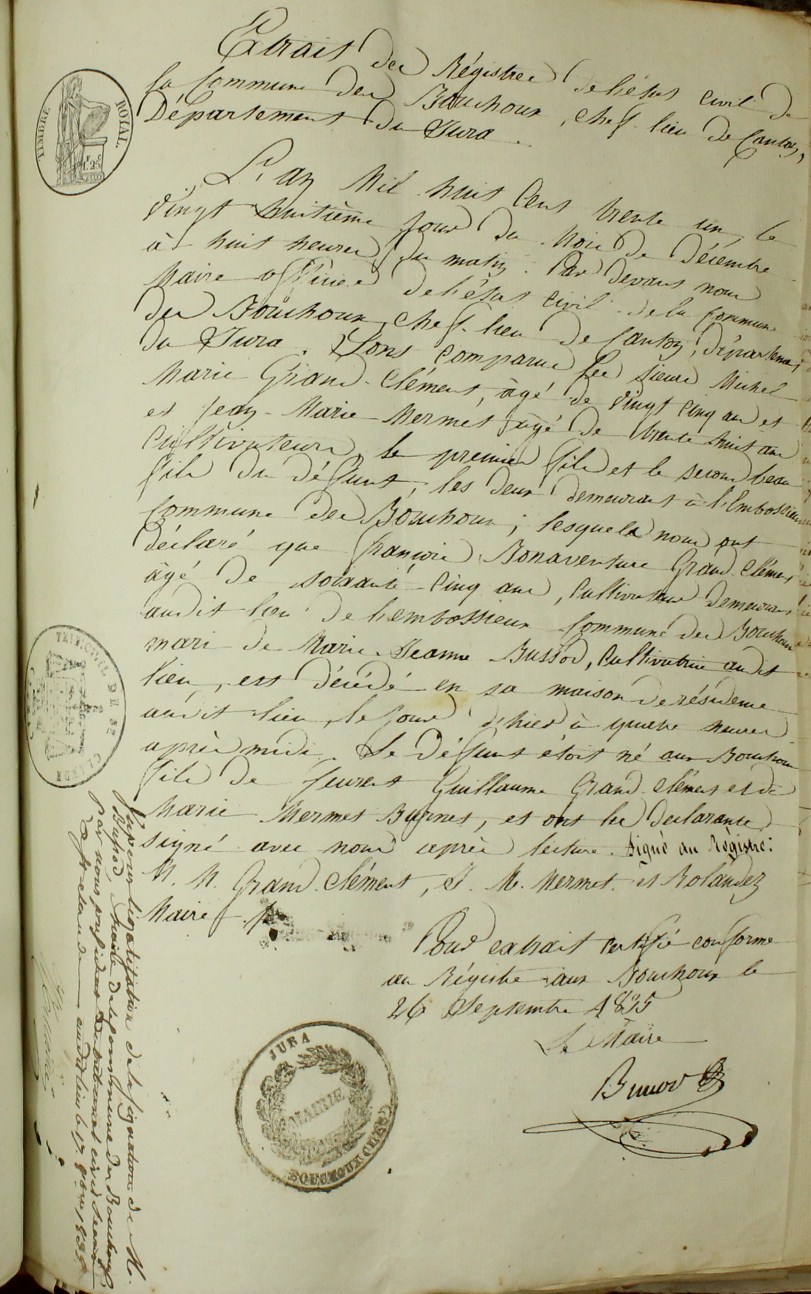 TIMBRE ROYAL.
Extrait des Régistres de l'état civil de
la Commune des Bouchoux, chef lieu de Canton,
Département du Jura.
L'an Mil huit Cent trente un, le
vingt huitième jour du Mois de décembre
à huit heures du matin. Par devant nous
Maire officier de l'état civil de la Commune
des Bouchoux, chef lieu de Canton, départem.t
du Jura. Sont comparus les sieurs Michel
Marie Grand-Clément, âgé de vingt cinq ans et
et Jean-Marie Mermet âgé de trente huit ans
Cultivateurs, le premier fils et le second beau
fils du défunt, les deux demeurant à l'Embossieux
Commune des Bouchoux; lesquels nous ont
déclaré que françois Bonaventure Grand Clément
âgé de soixante-cinq ans, Cultivateur demeurant
audit lieu de l'embossieux Commune des Bouchoux
mari de Marie-Jeanne Bussod, Cultivatrice audit
lieu, est décédé en sa maison de résidence
audit lieu, le jour d'hier à quatre heures
après midi. Le défunt étoit né aux Bouchoux
fils de feurent Guillaume Grand-clément et de
Marie Mermet Burnet, et ont les déclarants
signé avec nous après lecture. Signé au Régistre:
M. M. Grand-Clément, J. M. Mermet et Rolandez
Maire.
Pour extrait certifié conforme
au Régistre aux Bouchoux le
26 Septembre 1835
Le Maire
JURA
MAIRIE
TRIB. CIVIL DE ST CLAUDE
Vu pour légalisation de la signature de M.
Maire de la Commune des Bouchoux
par nous président du tribunal civil séant
à St Claude audit lieu le